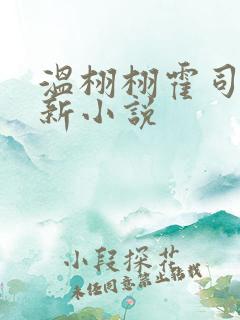 温栩栩霍司
新小说
小段探花
未经同意禁止转载